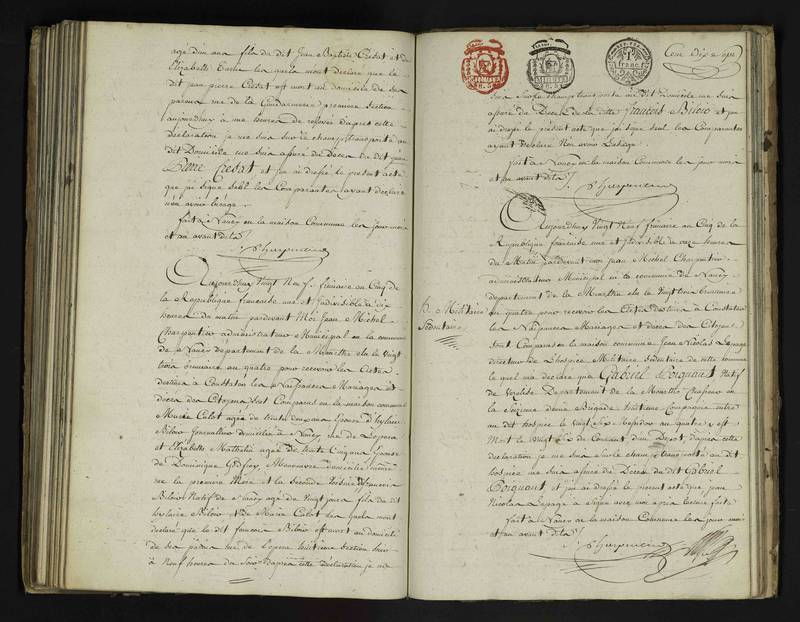 agé d'un ans fils du dit Jean Baptiste Cretat et de
Elizabeth les quels m'ont déclaré que le
dit jean pierre Cretat est mort au domicile de ses
parens rue de la Gendarmerie premiere Section
aujourdhuy à une heures de d'apres cette
Déclaration je me suis sur le champ transporté au
dit Domicile me suis assuré du Décès du dit jean
Pierre Cretat et j'ai dressé le present acte
que j'ai signé seul les Comparantes ayant déclaré
n'en avoir l'usage.
fait à Nancy en la maison Commune les jour mois
et an avant dits
Charpentier
Aujourdhuy vingt Neuf frimaire an Cinq de
la Republique française une et Indivisible à dix
heures du matin pardevant Moi Jean Michel
Charpentier administrateur Municipal en la commune
de Nancy département de la Meurthe élu le vingt
trois brumaire an quatre pour recevoir les Actes
destinés à Constater les Naissances Mariages et
décès des Citoyens sont Comparus en la maison commune
Marie Calot agée de trente deux ans Epouse d'hylaire
Biloir Journallier domiciliée à Nancy rue de
et Elizabeth Mathelin agée de trente Cinq ans Epouse
de Dominique Godfroy, Manoeuvre domiciliée même rue
la premiere Mere et la Seconde Voisine de francois
Biloir Natif de Nancy agé de vingt jours fils du dit
hylaire Biloir et de Marie Calot les quels m'ont
declaré que le dit francois Biloir est mort au domicile
de ses pères rue de huitieme Section hier
à Neuf heures du Soir d'après cette déclaration je me
1 franc
Cent Dix
suis sur le champ transporté au dit Domicile me suis
assuré du Décès de la ditte francois Biloir et j'ai
dressé le présent acte que j'ai signé seul les Comparantes
ayant déclaré n'en avoir l'usage.
fait à Nancy en la maison Commune les jour mois
et an avant dits
Charpentier
Aujourdhuy Vingt Neuf frimaire an Cinq de la
Republique francaise une et Indivisible à onze heures
du Matin pardevant moi Jean Michel Charpentier
administrateur Municipal en la commune de Nancy
département de la Meurthe élu le vingt trois brumaire
an quatre pour recevoir les Actes destinés à Constater
les Naissances Mariages et décès des Citoyens
sont Comparus en la maison commune Jean Nicolas Lepage
directeur de l'hospice Militaire Sedentaire de cette commune
le quel m'a déclaré que Gabriel Poignant Natif
de Vezelise Departement de la Meurthe Chasseur en
la Seizieme demie Brigade huitieme Compagnie entré
au dit hospice le vingt Six Messidor an quatre y est
Mort le vingt de Courant d'un Depot, d'apres cette
declaration je me suis sur le champ transporté au dit
hospice me suis assuré du Décès du dit Gabriel
Poignant et j'ai dressé le present acte que jean
Nicolas Lepage à signé avec moi apres lecture faite
fait à Nancy en la maison Commune les jour mois
et an avant dits
Charpentier
h. Militaire
Sedentaire